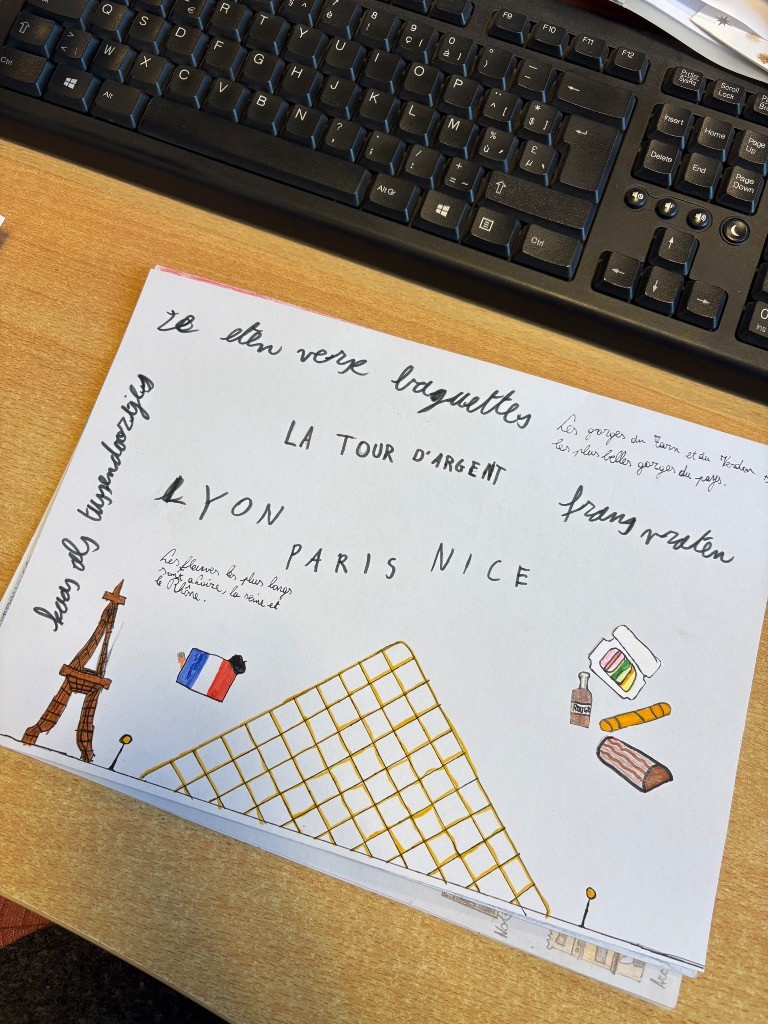 F9 F10 F11 F12
Q S D E R T Y U I O P
F G H J K L M
W X C V B N
Ctrl Alt Alt Gr Ctrl
PrtScn SysRq
Scroll Lock
Insert Home Page Up
Delete End Page Down
0 Ins
ze eten verse baguettes
Les gorges du Tarn et du Verdon
les plus belles gorges du pays.
kaas als tussendoortjes
LA TOUR D'ARGENT
frans praten
LYON
PARIS NICE
Les fleuves les plus longs
sont a Loire, la seine et
le Rhône.